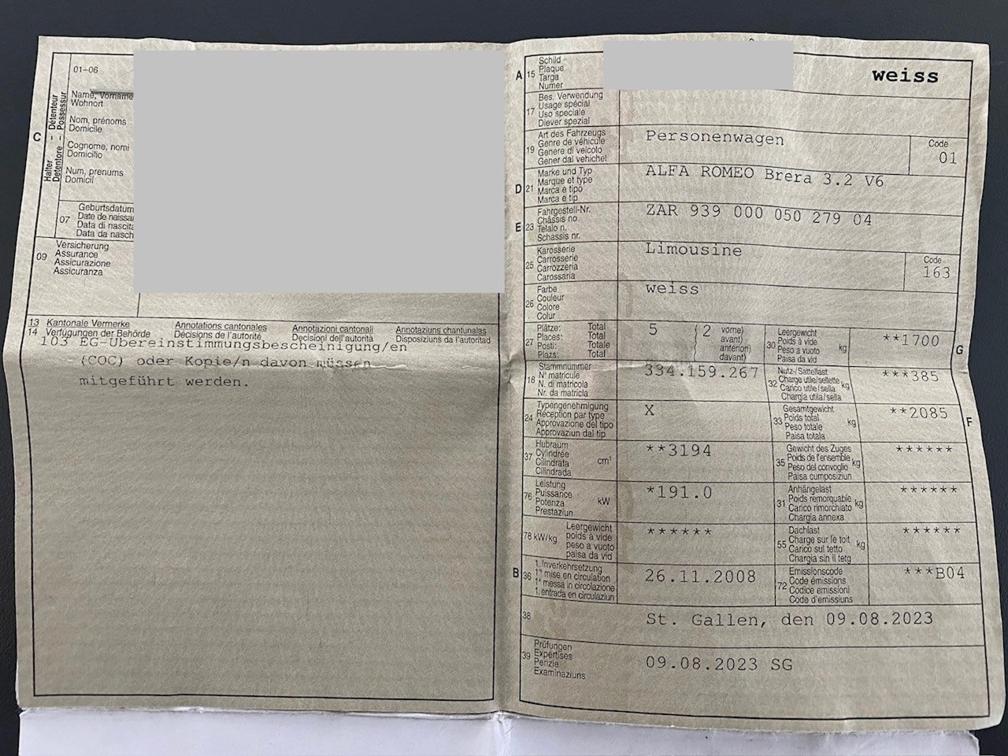 01-06
Name, Vorname
Wohnort
Nom, prénoms
Domicile
Cognome, nomi
Domicilio
Num, prenums
Domicil
C
Halter – Détenteur
Detentore – Possessur
07
Geburtsdatum
Date de naissa
Data di nascita
Data da nasch
09
Versicherung
Assurance
Assicurazione
Assicuranza
13 Kantonale Vermerke Annotations cantonales Annotazioni cantonali Annotaziuns chantunalas
14 Verfügungen der Behörde Décisions de l'autorité Decisioni dell'autorità Disposiziuns da l'autoritad
103 EG-Übereinstimmungsbescheinigung/en
(COC) oder Kopie/n davon müssen
mitgeführt werden.
A 15
Schild
Plaque
Targa
Numer
weiss
17
Bes. Verwendung
Usage spécial
Uso speciale
Diever spezial
19
Art des Fahrzeugs
Genre de véhicule
Genere di veicolo
Gener dal vehichel
Personenwagen
Code
01
D 21
Marke und Typ
Marque et type
Marca e tipo
Marca e tip
ALFA ROMEO Brera 3.2 V6
E 23
Fahrgestell-Nr.
Châssis no
Telaio n.
Schassis nr.
ZAR 939 000 050 279 04
25
Karosserie
Carrosserie
Carrozzeria
Carossaria
Limousine
Code
163
26
Farbe
Couleur
Colore
Colur
weiss
27
Plätze: Total
Places: Total
Posti: Totale
Plazs: Total
5 (2 vorne)
avant)
anteriori)
davant)
30
Leergewicht
Poids à vide
Peso a vuoto
Paisa da vid
kg
**1700
G
18
Stammnummer
N° matricule
N. di matricola
Nr. da matricla
334.159.267
32
Nutz-/Sattellast
Charge utile/sellette
Carico utile/sella
Chargia utila/sella
kg
***385
24
Typengenehmigung
Réception par type
Approvazione del tipo
Approvaziun dal tip
X
33
Gesamtgewicht
Poids total
Peso totale
Paisa totala
kg
**2085
F
37
Hubraum
Cylindrée
Cilindrata
Cilindrada
cm³
**3194
35
Gewicht des Zuges
Poids de l'ensemble
Peso del convoglio
Paisa cumposiziun
kg
******
76
Leistung
Puissance
Potenza
Prestaziun
kW
*191.0
31
Anhängelast
Poids remorquable
Carico rimorchiato
Chargia annexa
kg
******
78 kW/kg
Leergewicht
poids à vide
peso a vuoto
paisa da vid
******
55
Dachlast
Charge sur le toit
Carico sul tetto
Chargia sin il tetg
kg
******
B 36
1. Inverkehrsetzung
1re mise en circulation
1a messa in circolazione
1. entrada en circulaziun
26.11.2008
72
Emissionscode
Code émissions
Codice emissioni
Code d'emissiuns
***B04
38
St. Gallen, den 09.08.2023
39
Prüfungen
Expertises
Perizie
Examinaziuns
09.08.2023 SG